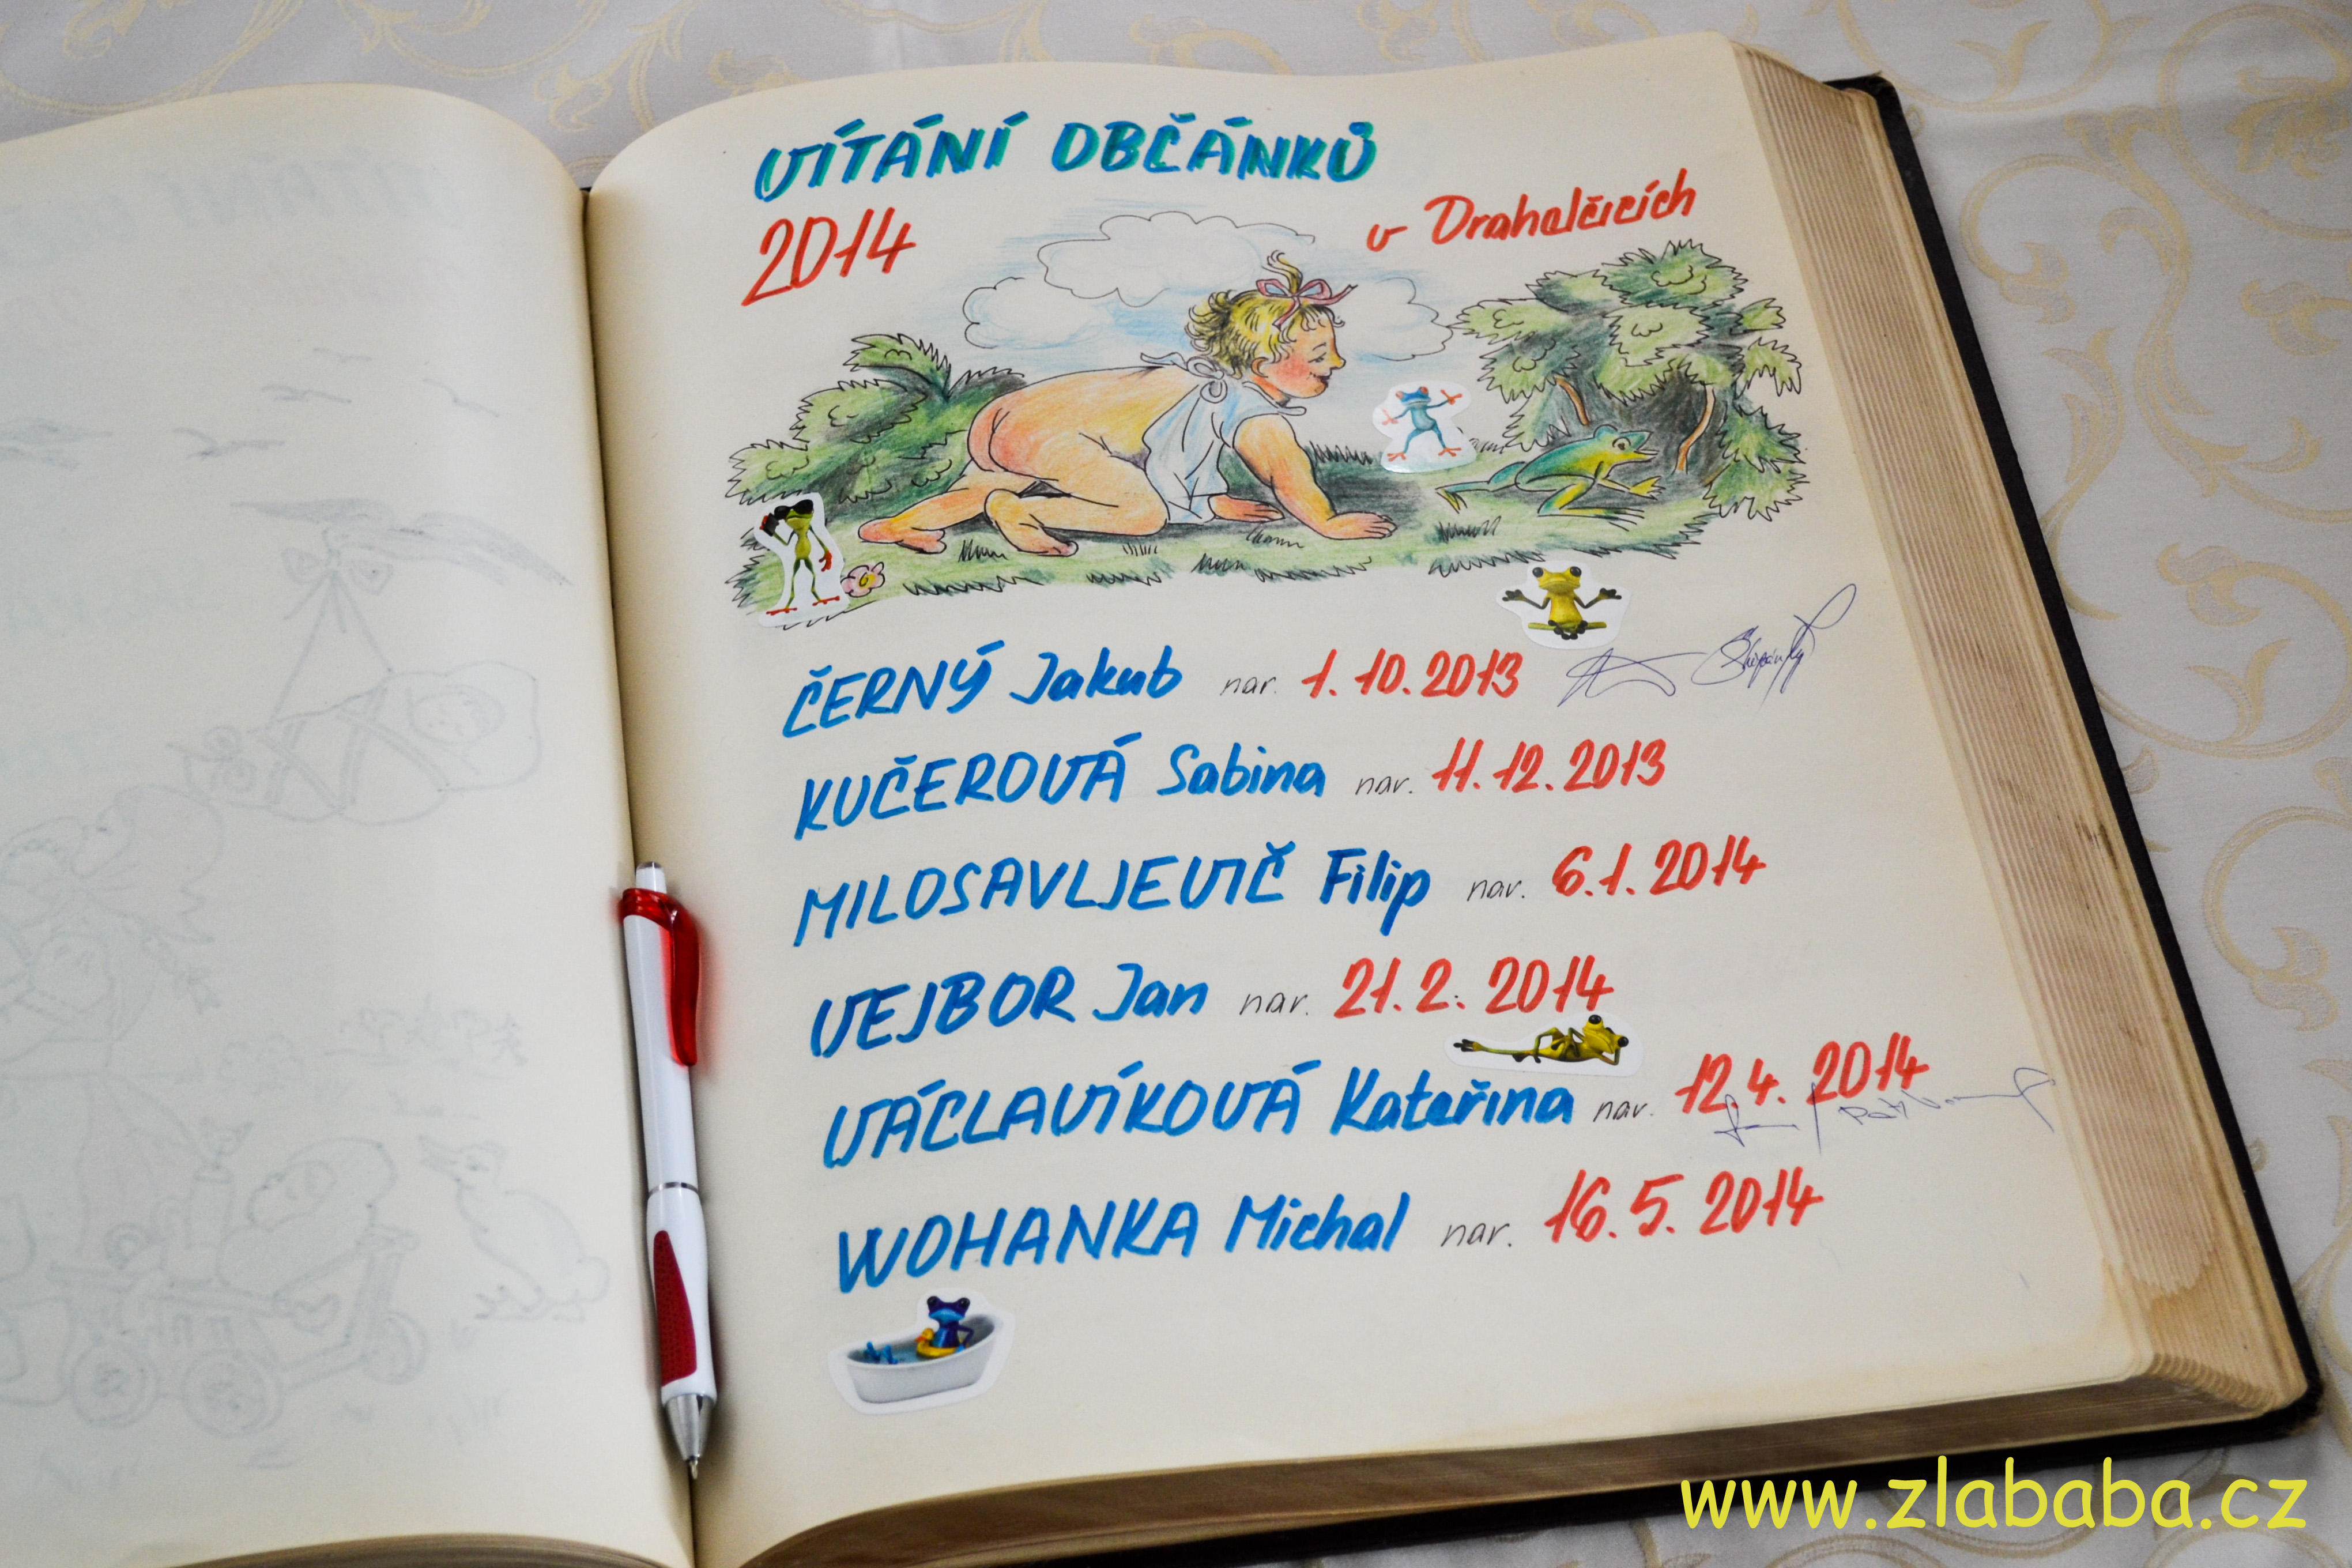 VÍTÁNÍ OBČÁNKŮ
2014
v Drahelčicích
ČERNÝ Jakub nar. 1. 10. 2013
KUČEROVÁ Sabina nar. 11. 12. 2013
MILOSAVLJEVIČ Filip nar. 6. 1. 2014
VEJBOR Jan nar. 21. 2. 2014
VÁCLAVÍKOVÁ Kateřina nar. 12. 4. 2014
WOHANKA Michal nar. 16. 5. 2014
www.zlababa.cz